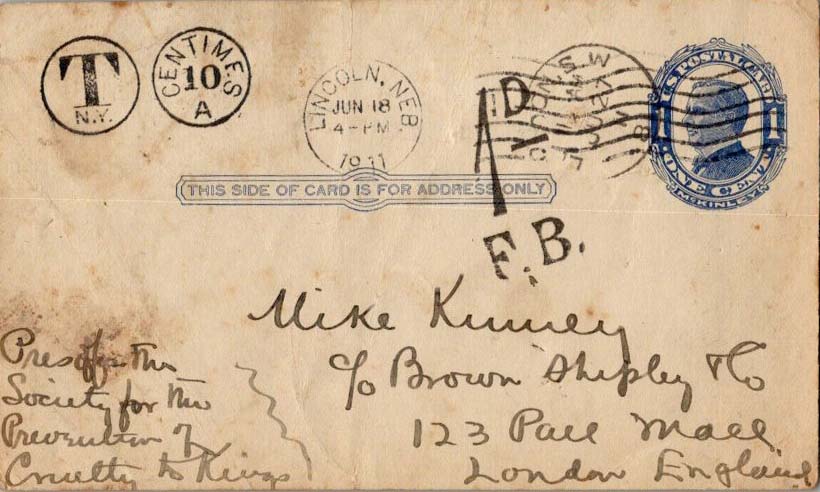 T
N.Y.
CENTIMES
10
A
LINCOLN, NEB.
JUN 18
4-PM
1911
1D
F.B.
LONDON S.W.
U.S. POSTAL CARD
1 1
ONE CENT
McKINLEY
THIS SIDE OF CARD IS FOR ADDRESS ONLY
Mike Kinney
c/o Brown Shipley & Co
123 Pall Mall
London England
Pres of the
Society for the
Prevention of
Cruelty to Kings